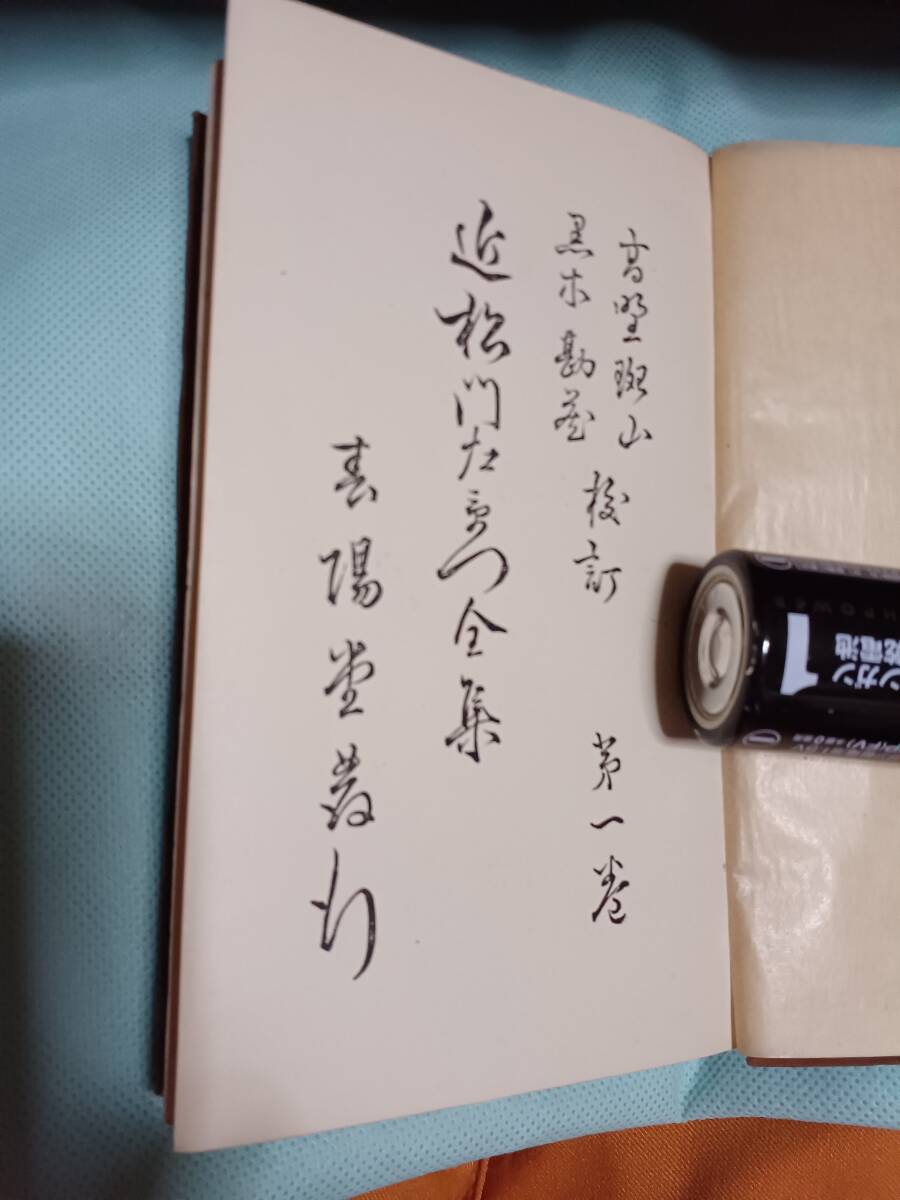 高野斑山
黒木勘蔵
校訂
第一巻
近松門左衛門全集
春陽堂發行
ンガン
乾電池
1